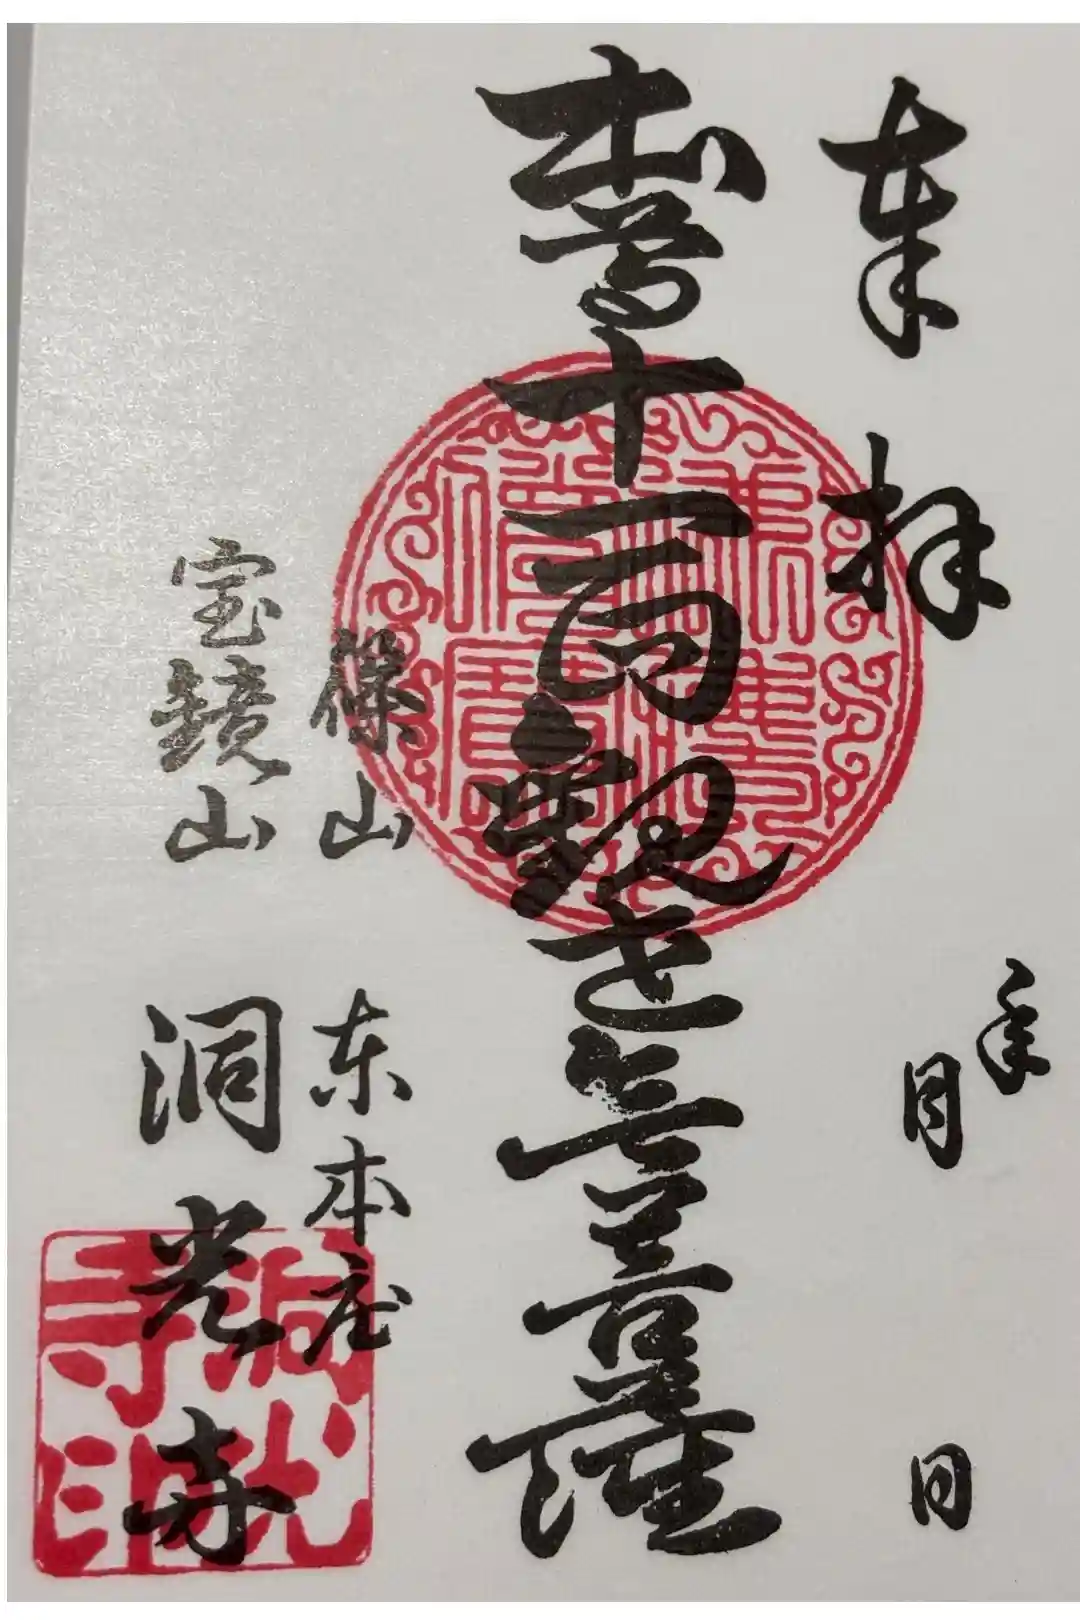 奉拝
年
月 日
本尊十一面観世音菩薩
篠山 東本庄
宝鏡山 洞光寺
洞光寺印